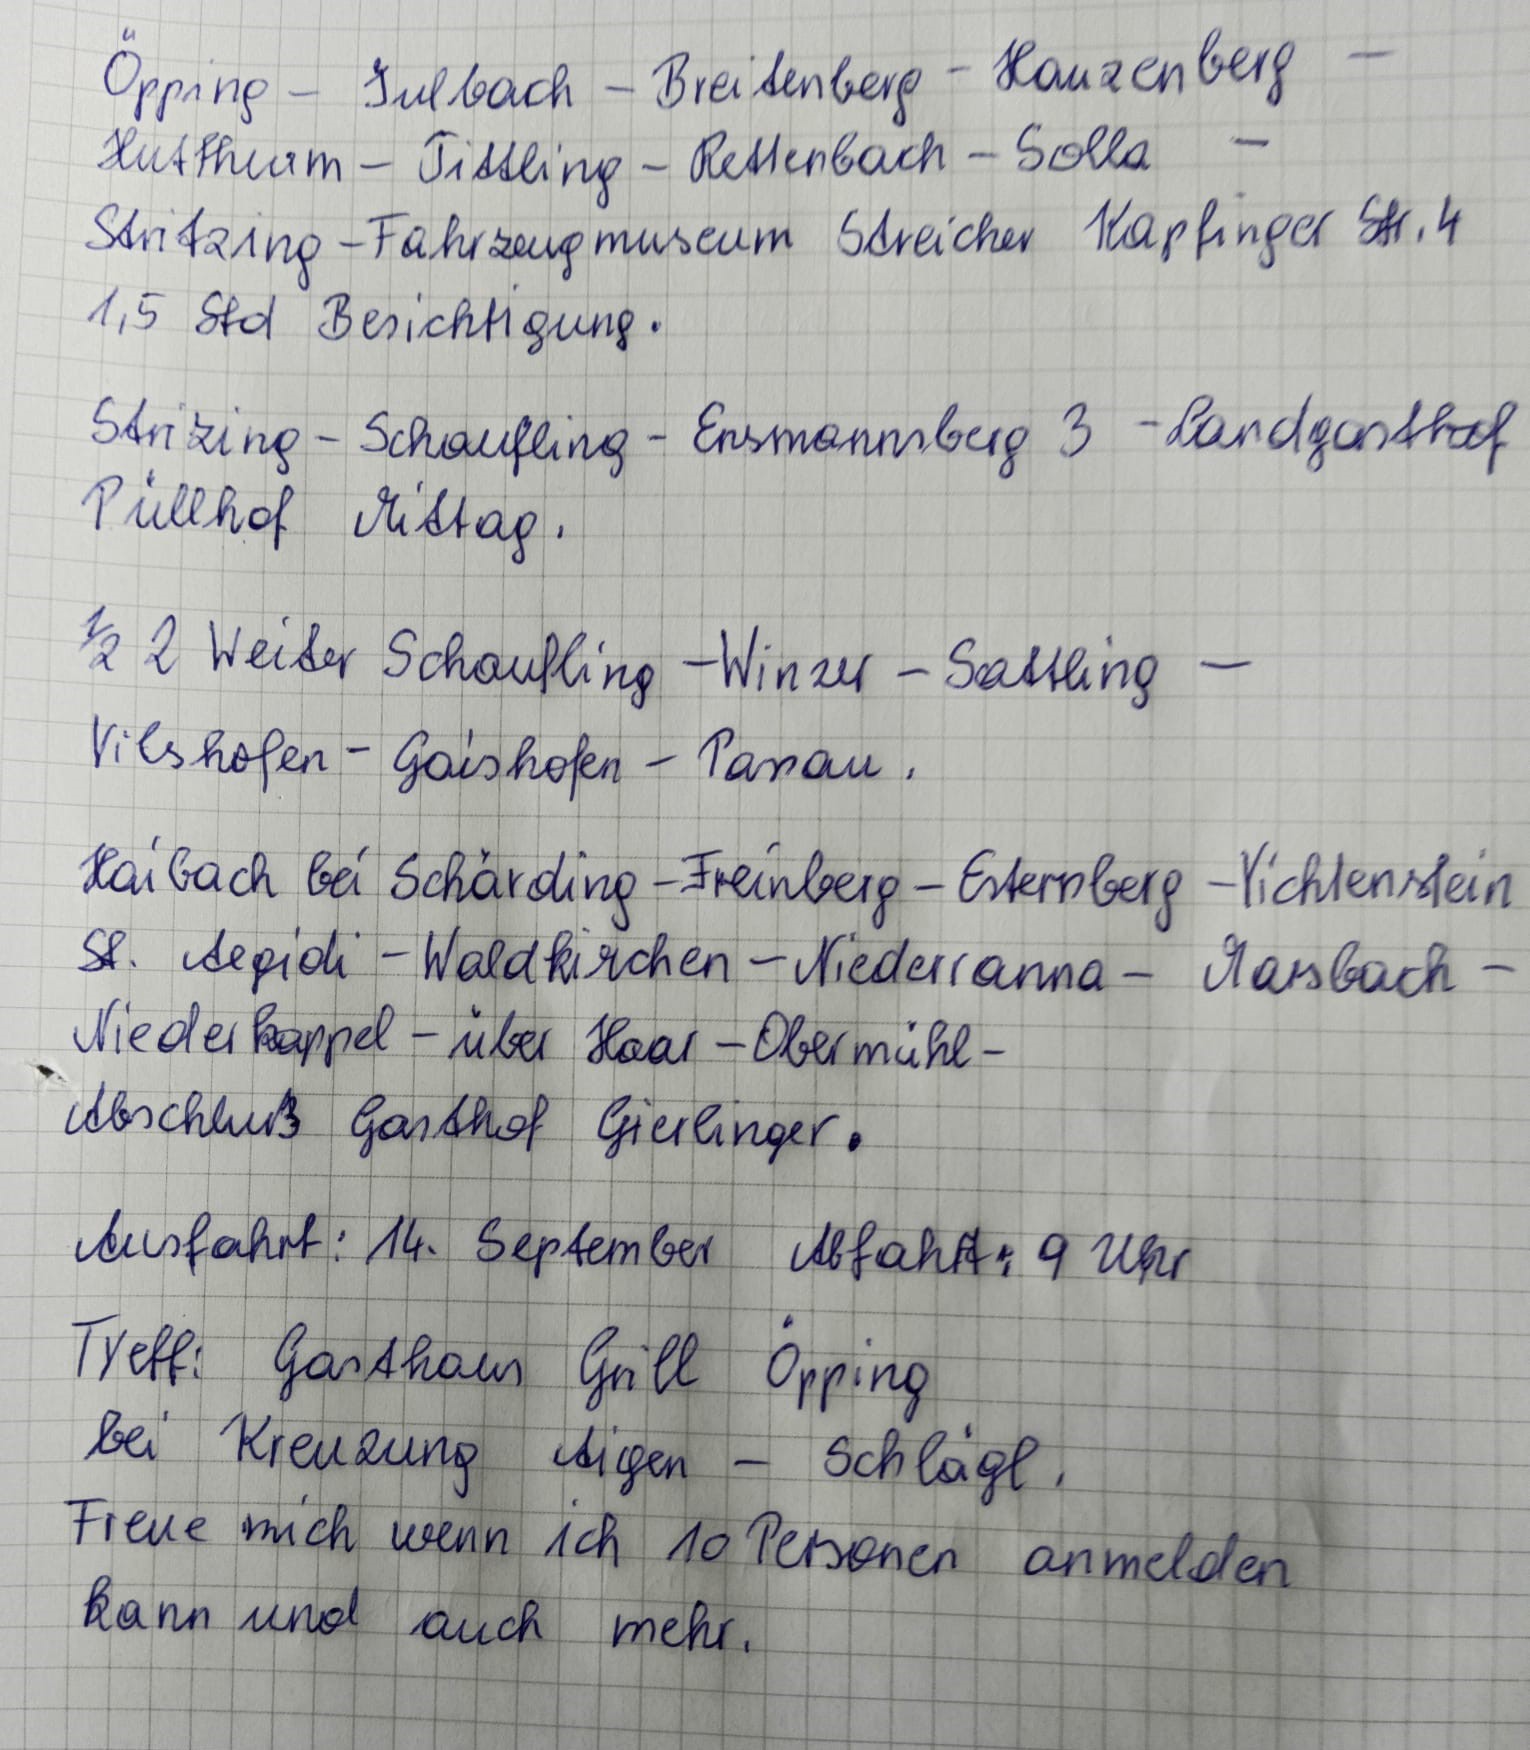 Öpping - Julbach - Breitenberg - Hauzenberg -
Hutthurm - Tittling - Rettenbach - Solla -
Stritzing - Fahrzeugmuseum Streicher Kapfinger Str. 4
1,5 Std Besichtigung.
Strizing - Schaufling - Ensmannsberg 3 - Landgasthof
Püllhof Mittag.
1/2 2 Weiter Schaufling - Winzer - Sattling -
Vilshofen - Gaishofen - Passau.
Haibach bei Schärding - Freinberg - Esternberg - Vichtenstein
St. Aegidi - Waldkirchen - Niederranna - Marsbach -
Niederkappel - über Haar - Obermühl -
Abschluß Gasthof Gierlinger.
Ausfahrt: 14. September Abfahrt: 9 Uhr
Treff: Gasthaus Grill Öpping
bei Kreuzung Aigen - Schlägl.
Freue mich wenn ich 10 Personen anmelden
kann und auch mehr.